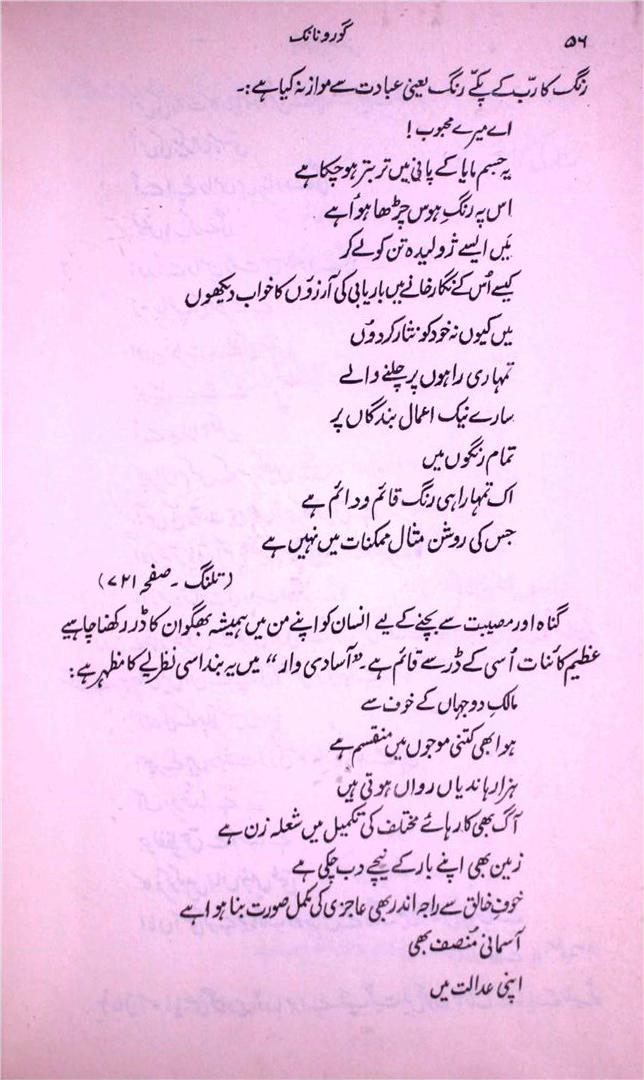 ۵۶
گورونانک
رنگ کا ربّ کے پکّے رنگ یعنی عبادت سے موازنہ کیا ہے:۔
اے میرے محبوب!
یہ جسم مایا کے پانی میں تر بتر ہو چکا ہے
اس پہ رنگِ ہوس چڑھا ہوُا ہے
مَیں ایسے ژولیدہ تن کو لے کر
کیسے اُس کے نگار خانے میں باریابی کی آرزوں کا خواب دیکھوں
میں کیوں نہ خود کو نثار کر دوُں
تمہاری راہوں پر چلنے والے
سارے نیک اعمال بندگاں پر
تمام رنگوں میں
اک تمہارا ہی رنگ قائم و دائم ہے
جس کی روشن مثال ممکنات میں نہیں ہے
(تلنگ ۔ صفحہ ۷۲۱)
گناہ اور مصیبت سے بچنے کے لیے انسان کو اپنے من میں ہمیشہ بھگوان کا ڈر رکھنا چاہیے
عظیم کائنات اُسی کے ڈر سے قائم ہے۔ "آسا دی وار" میں یہ بند اسی نظریے کا مظہر ہے:
مالکِ دوجہاں کے خوف سے
ہوا بھی کتنی موجوں میں منقسم ہے
ہزارہا ندیاں رواں ہوتی ہیں
آگ بھی کارہائے مختلف کی تکمیل میں شعلہ زن ہے
زمین بھی اپنے بار کے نیچے دب چکی ہے
خوفِ خالق سے راجہ اندر بھی عاجزی کی مکمل صورت بنا ہوا ہے
آسمانی مُنصف بھی
اپنی عدالت میں